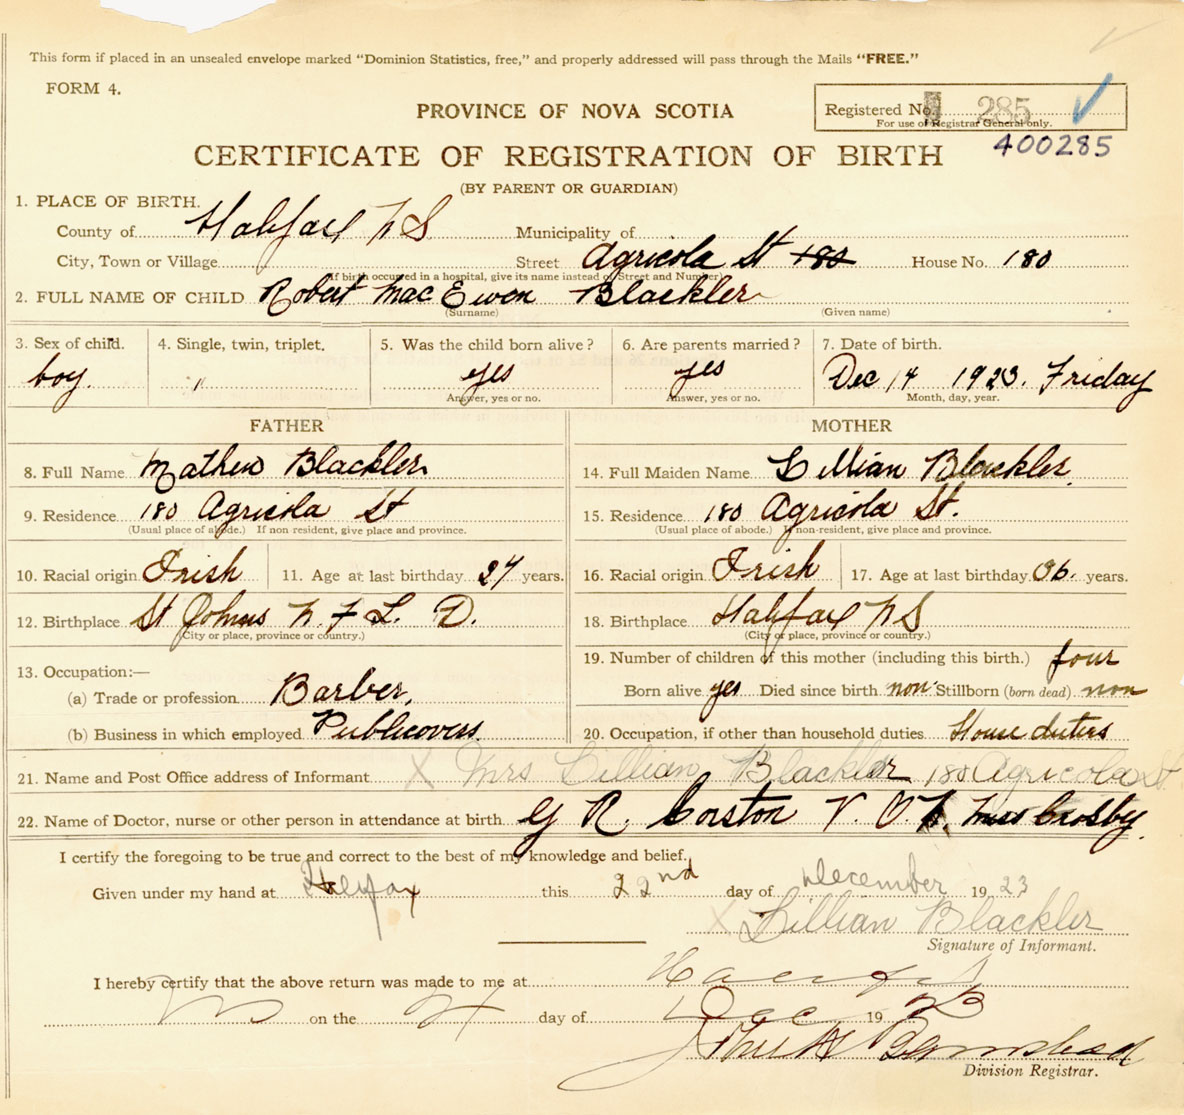 This form if placed in an unsealed envelope marked "Dominion Statistics, free," and properly addressed will pass through the Mails "FREE."
FORM 4.
PROVINCE OF NOVA SCOTIA
Registered No. 285
For use of Registrar General only.
400285
CERTIFICATE OF REGISTRATION OF BIRTH
(BY PARENT OR GUARDIAN)
1. PLACE OF BIRTH.
County of Halifax N S Municipality of
City, Town or Village Street Agricola St 180 House No. 180
(If birth occurred in a hospital, give its name instead of Street and Number)
2. FULL NAME OF CHILD Robert Mac Ewen Blackler
(Surname) (Given name)
3. Sex of child. 4. Single, twin, triplet. 5. Was the child born alive? 6. Are parents married? 7. Date of birth.
boy. " yes yes Dec 14 1923. Friday
Answer, yes or no. Answer, yes or no. Month, day, year.
FATHER MOTHER
8. Full Name Mathew Blackler 14. Full Maiden Name Lillian Blackler
9. Residence 180 Agricola St 15. Residence 180 Agricola St.
(Usual place of abode.) If non resident, give place and province. (Usual place of abode.) If non-resident, give place and province.
10. Racial origin Irish 11. Age at last birthday 27 years. 16. Racial origin Irish 17. Age at last birthday years.
12. Birthplace St Johns N. F L. D. 18. Birthplace Halifax N S
(City or place, province or country.) (City or place, province or country.)
13. Occupation:— 19. Number of children of this mother (including this birth.) four
(a) Trade or profession Barber, Born alive yes Died since birth non Stillborn (born dead) non
(b) Business in which employed Publicovers 20. Occupation, if other than household duties House duties
21. Name and Post Office address of Informant X Mrs Lillian Blackler 180 Agricola St.
22. Name of Doctor, nurse or other person in attendance at birth G R. Corston V. O. Miss Crosby.
I certify the foregoing to be true and correct to the best of my knowledge and belief.
Given under my hand at Halifax this 22nd day of December 1923
X Lillian Blackler
Signature of Informant.
I hereby certify that the above return was made to me at Halifax
on the day of Dec 1923
Division Registrar.